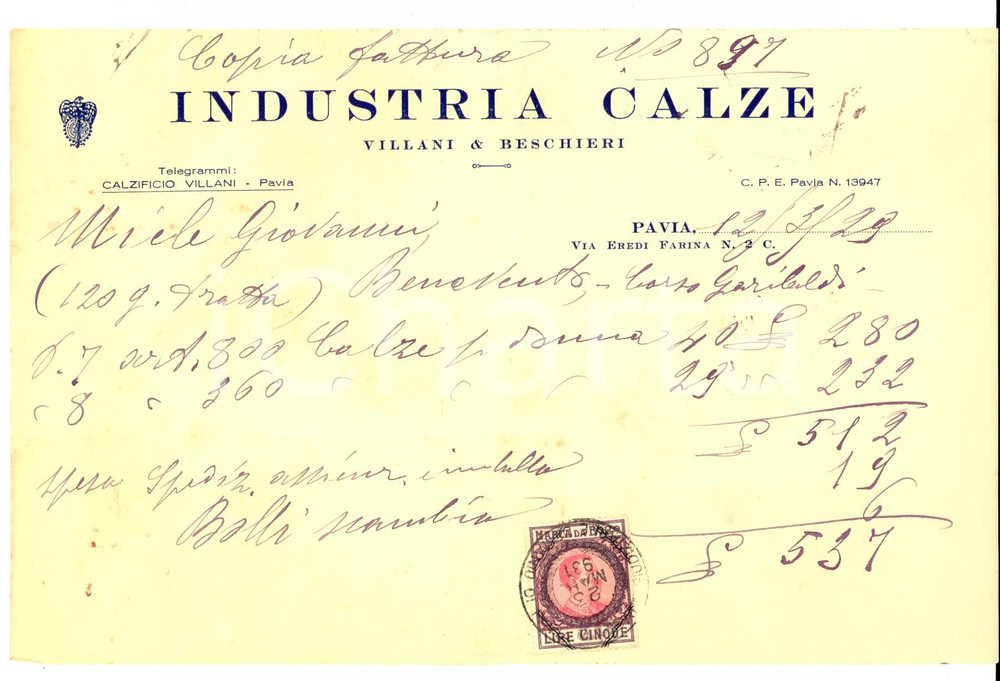 Copia fattura No 897
INDUSTRIA CALZE
VILLANI & BESCHIERI
Telegrammi:
CALZIFICIO VILLANI - Pavia
C. P. E. Pavia N. 13947
Miele Giovanni,
PAVIA, 12/3/29
VIA EREDI FARINA N. 2 C.
(120 g. tratta) Benevento, - Corso Garibaldi -
D. 7 art. 800 Calze p. donna 40 £ 280
" 8 " 360 " " " 29 " 232
£ 512
spesa Spediz. imballo 19
Bolli scambio 6
£ 537
MARCA DA BOLLO
23
MAR
931
LIRE CINQUE